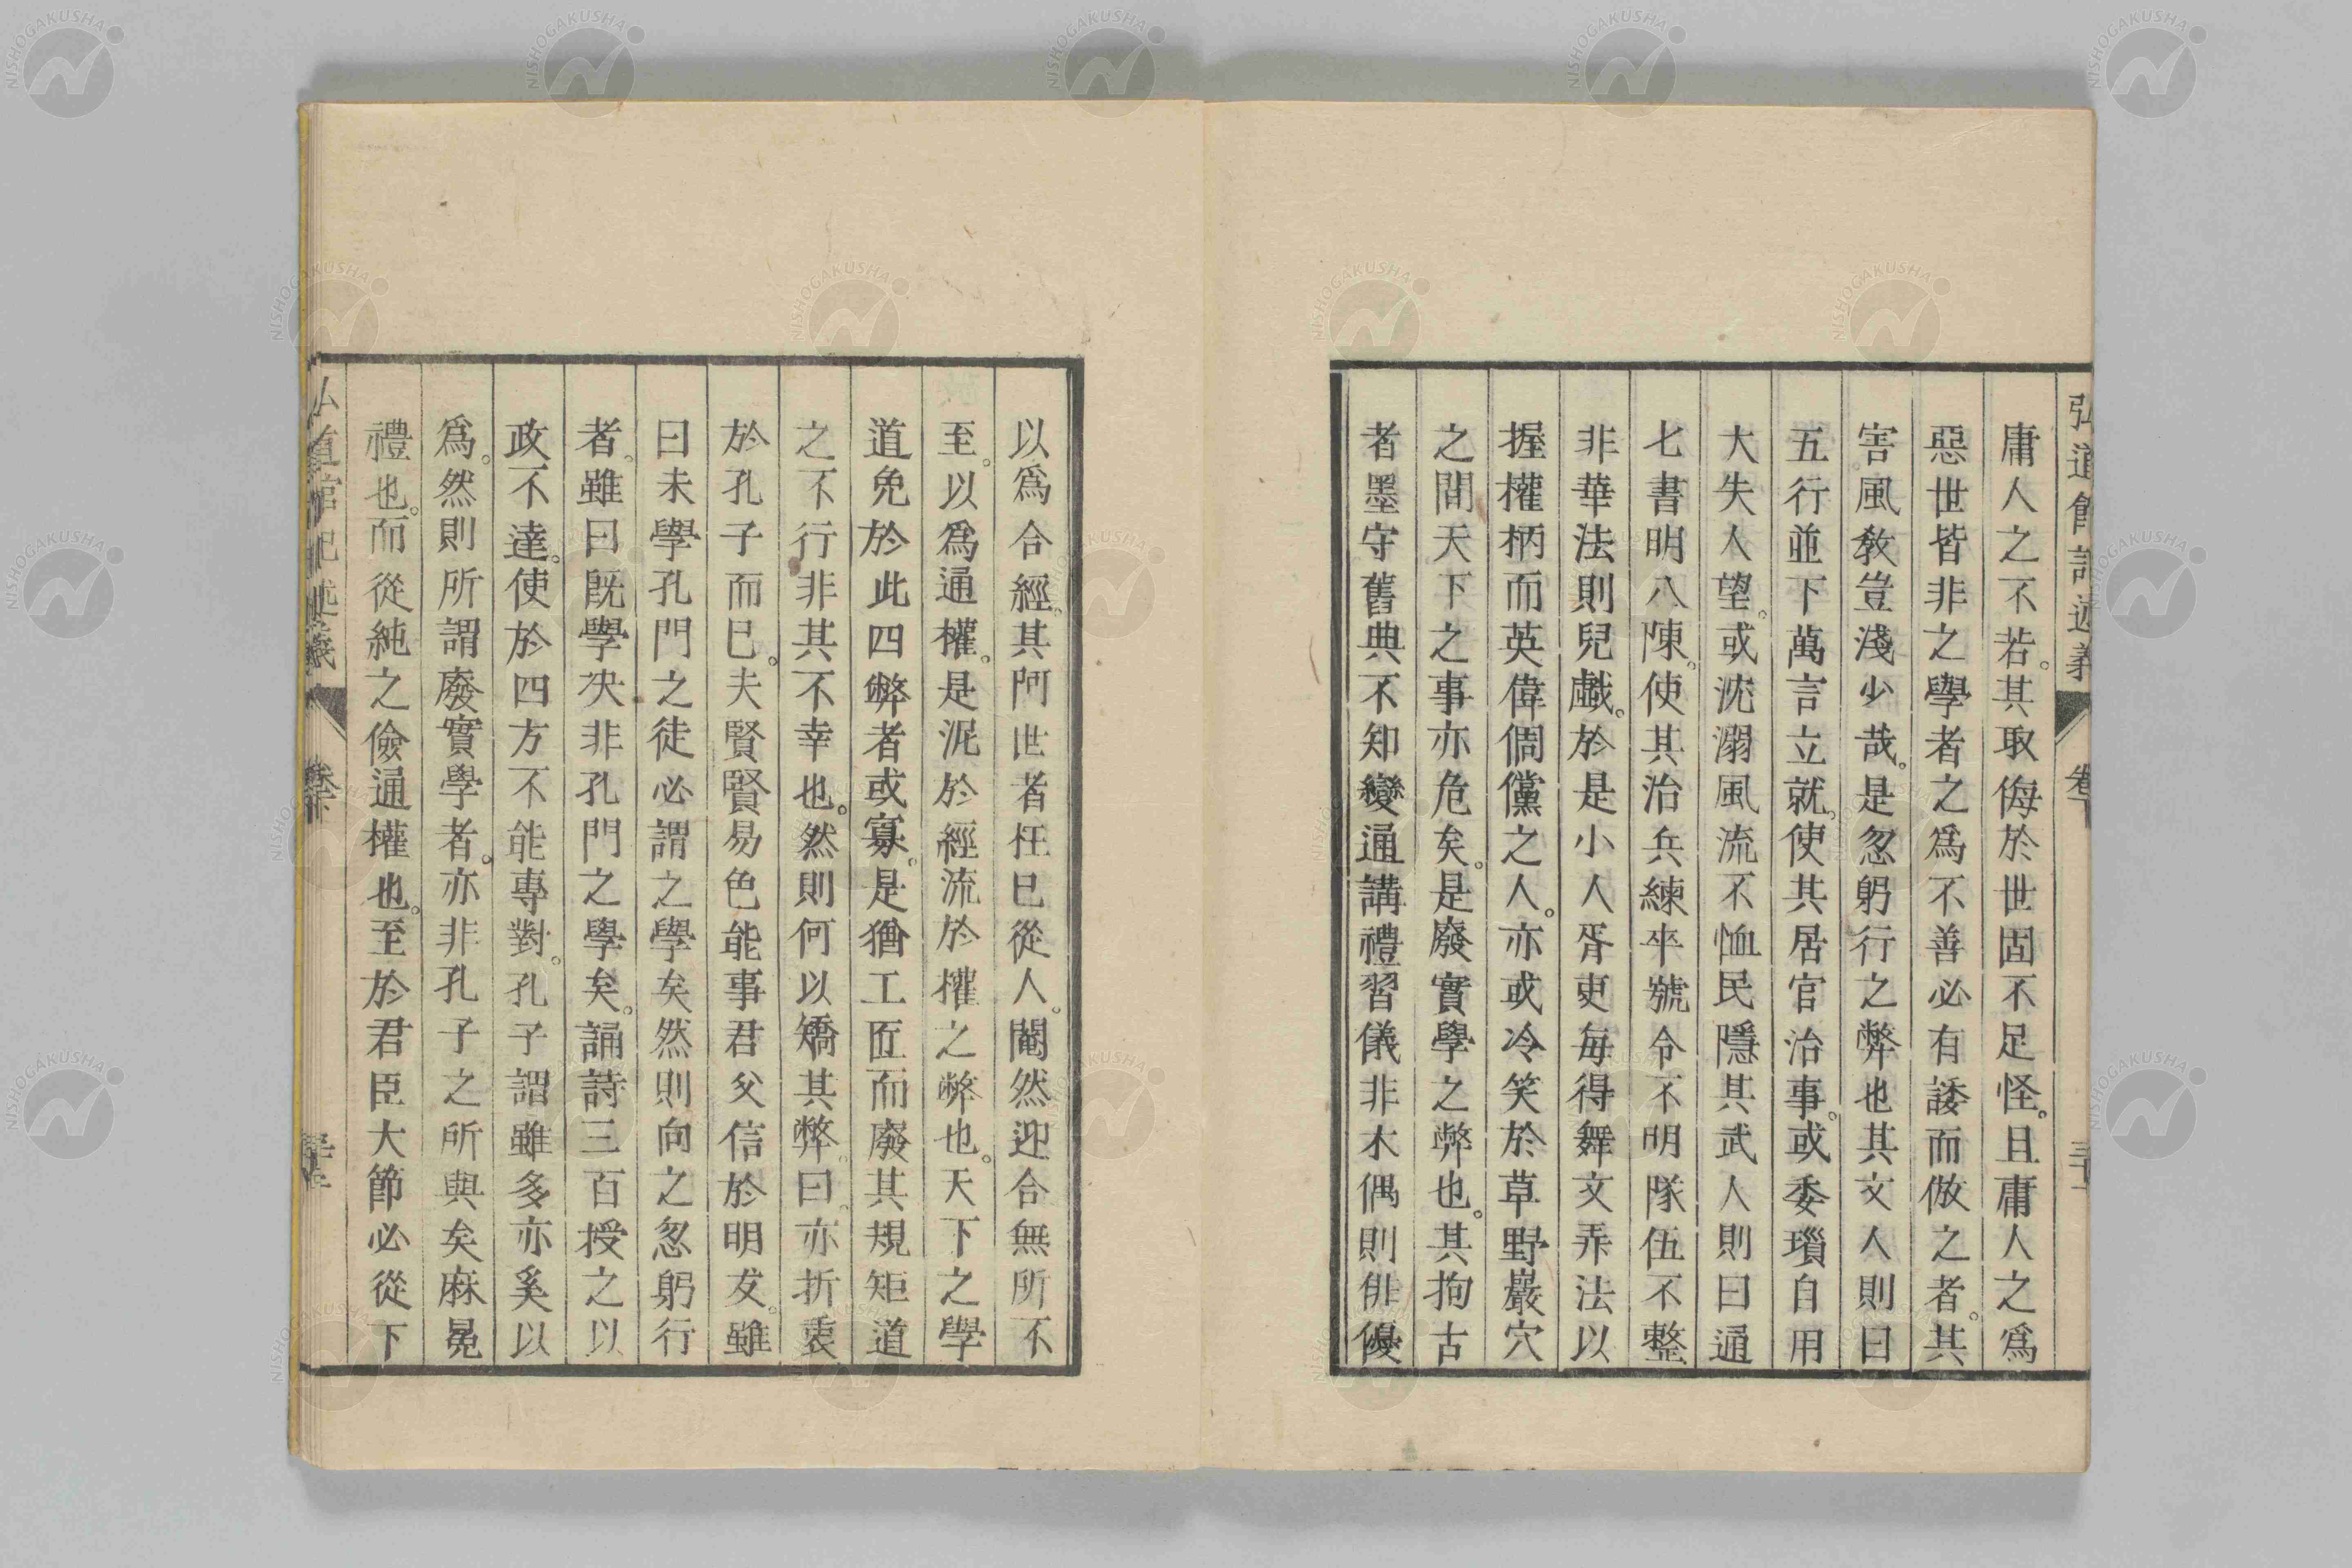 弘道館記述義 卷下 三十一
庸人之不若。其取侮於世固不足怪。且庸人之爲
惡世皆非之學者之爲不善必有諉而倣之者。其
害風敎豈淺少哉。是忽躬行之弊也其文人則曰
五行並下萬言立就。使其居官治事。或委瑣自用
大失人望。或沈溺風流不恤民隱其武人則曰通
七書明八陳。使其治兵練卒號令不明隊伍不整
非華法則兒戯。於是小人胥吏每得舞文弄法以
握權柄而英偉倜儻之人。亦或冷笑於草野巖穴
之間天下之事亦危矣。是廢實學之弊也。其拘古
者墨守舊典不知變通講禮習儀非木偶則俳優
以爲合經。其阿世者枉已從人。閹然迎合無所不
至。以爲通權。是泥於經流於權之弊也。天下之學
道免於此四弊者或寡。是猶工匠而廢其規矩道
之不行非其不幸也。然則何以矯其弊。曰。亦折衷
於孔子而已。夫賢賢易色能事君父信於明友。雖
曰未學孔門之徒必謂之學矣然則向之忽躬行
者。雖曰既學决非孔門之學矣。誦詩三百授之以
政不達。使於四方不能專對。孔子謂雖多亦奚以
爲。然則所謂廢實學者。亦非孔子之所與矣麻冕
禮也。而從純之儉通權也。至於君臣大節必從下
弘道館記述義 卷下
NISHOGAKUSHA